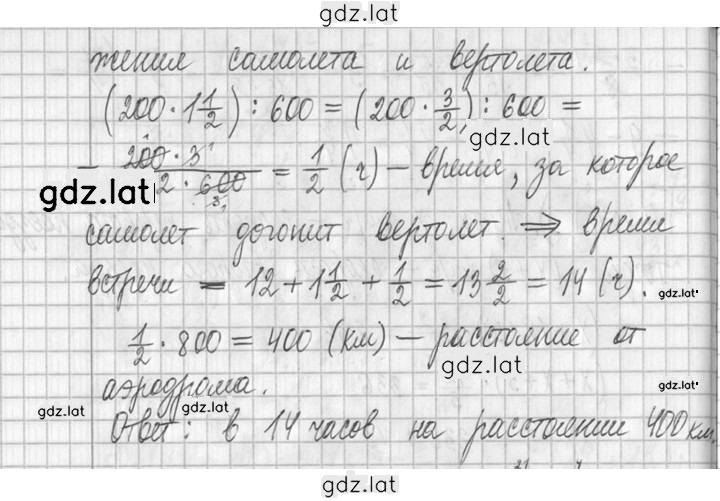 gdz.lat
жения самолета и вертолета.
(200 · 1 1/2) : 600 = (200 · 3/2) : 600 =
gdz.lat
= 200 · 3 / 2 · 600 = 1/2 (ч) – время, за которое
gdz.lat
самолет догонит вертолет. ⇒ время
встречи = 12 + 1 1/2 + 1/2 = 13 2/2 = 14 (ч).
gdz.lat
1/2 · 800 = 400 (км) – расстояние от
gdz.lat
аэродрома.
gdz.lat
gdz.lat gdz.lat
Ответ: в 14 часов на расстоянии 400 км.
gdz.lat